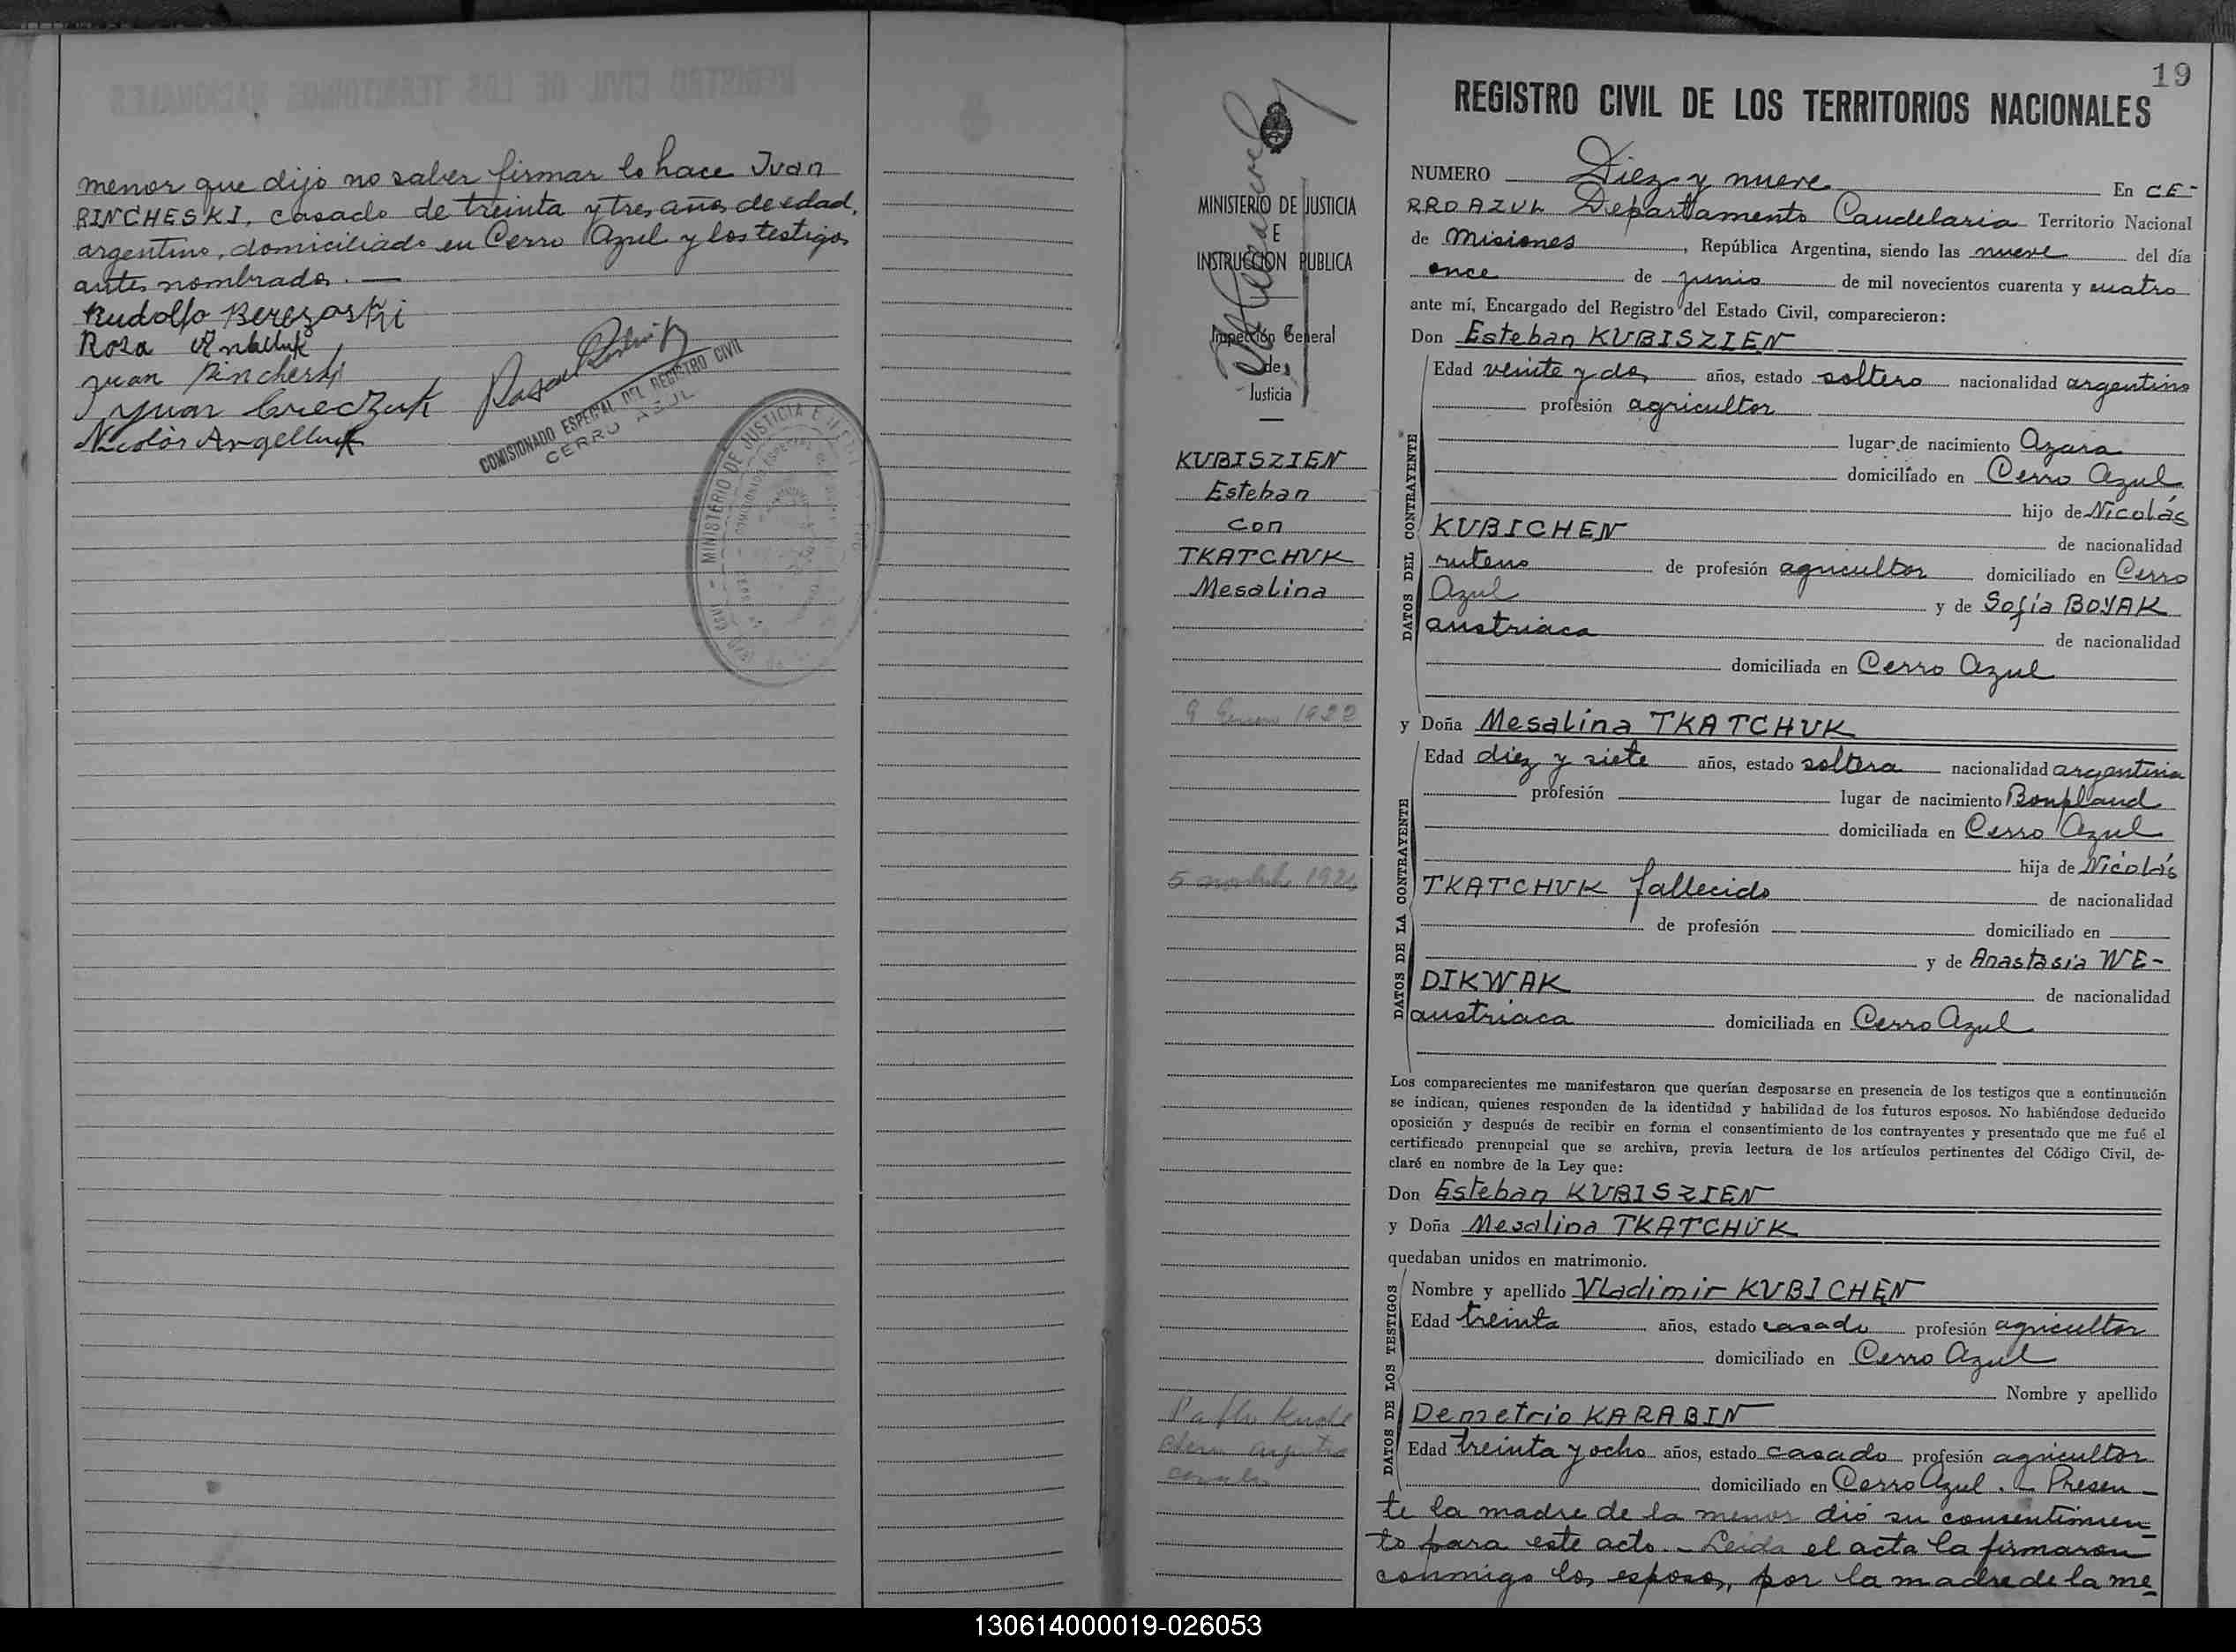 menor que dijo no saber firmar lo hace Juan
PINCHESKI, casado de treinta y tres años de edad,
argentino, domiciliado en Cerro Azul y los testigos
antes nombrados. —
Rudolfo Berezoski
Rosa
Juan Pincheski
Nicolás Angelluk
COMISIONADO ESPECIAL DEL REGISTRO CIVIL
CERRO AZUL
MINISTERIO DE JUSTICIA E
MINISTERIO DE JUSTICIA
E
INSTRUCCION PUBLICA
Inspección General
de
Justicia
KUBISZIEN
Esteban
con
TKATCHUK
Mesalina
9 Enero 1922
5 1926
argentino
19
REGISTRO CIVIL DE LOS TERRITORIOS NACIONALES
NUMERO Diez y nueve En CE-
RRO AZUL Departamento Candelaria Territorio Nacional
de Misiones, República Argentina, siendo las nueve del día
once de junio de mil novecientos cuarenta y cuatro
ante mí, Encargado del Registro del Estado Civil, comparecieron:
Don Esteban KUBISZIEN
Edad veinte y dos años, estado soltero nacionalidad argentino
profesión agricultor
lugar de nacimiento Azara
domiciliado en Cerro Azul
hijo de Nicolás
KUBICHEN de nacionalidad
ruteno de profesión agricultor domiciliado en Cerro
Azul y de Sofía BOYAK
austriaca de nacionalidad
domiciliada en Cerro Azul
DATOS DEL CONTRAYENTE
y Doña Mesalina TKATCHUK
Edad diez y siete años, estado soltera nacionalidad argentina
profesión lugar de nacimiento Bonpland
domiciliada en Cerro Azul
hija de Nicolás
TKATCHUK fallecido de nacionalidad
de profesión domiciliado en
y de Anastasia WE-
DIKWAK de nacionalidad
austriaca domiciliada en Cerro Azul
DATOS DE LA CONTRAYENTE
Los comparecientes me manifestaron que querían desposarse en presencia de los testigos que a continuación
se indican, quienes responden de la identidad y habilidad de los futuros esposos. No habiéndose deducido
oposición y después de recibir en forma el consentimiento de los contrayentes y presentado que me fué el
certificado prenupcial que se archiva, previa lectura de los artículos pertinentes del Código Civil, de-
claré en nombre de la Ley que:
Don Esteban KUBISZIEN
y Doña Mesalina TKATCHUK
quedaban unidos en matrimonio.
Nombre y apellido Vladimir KUBICHEN
Edad treinta años, estado casado profesión agricultor
domiciliado en Cerro Azul
Nombre y apellido
Demetrio KARABIN
Edad treinta y ocho años, estado casado profesión agricultor
domiciliado en Cerro Azul. — Presen-
DATOS DE LOS TESTIGOS
te la madre de la menor dió su consentimien-
to para este acto. — Leida el acta la firmaron
conmigo los esposos, por la madre de la me-
130614000019-026053